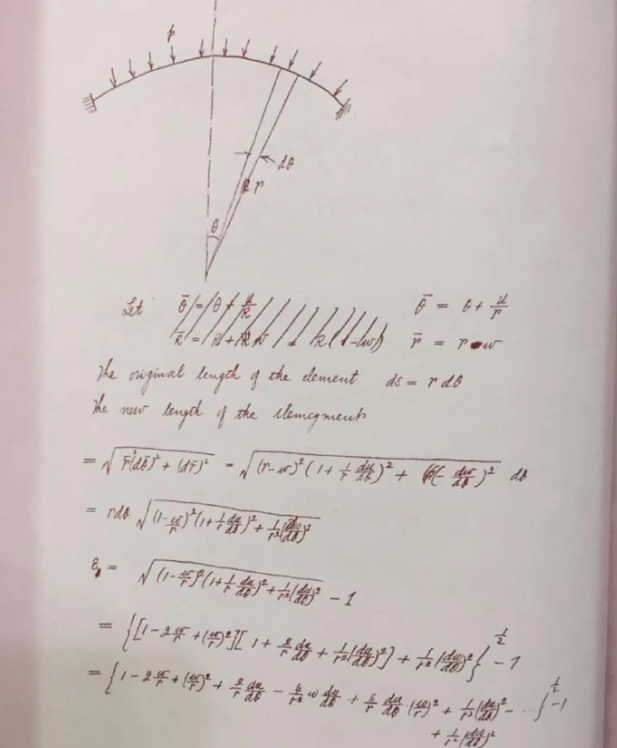 p
dθ
r
θ
Let θ̄ = θ + u/r
r̄ = r - w
The original length of the element ds = r dθ
The new length of the
= √( r̄²(dθ̄)² + (dr̄)² ) = √( (r-w)² (1 + 1/r du/dθ)² + (- dw/dθ)² ) dθ
= rdθ √( (1 - w/r)² (1 + 1/r du/dθ)² + 1/r² (dw/dθ)² )
= √( (1 - w/r)² (1 + 1/r du/dθ)² + 1/r² (dw/dθ)² ) - 1
= { [1 - 2 w/r + (w/r)²][1 + 2/r du/dθ + 1/r² (du/dθ)²] + 1/r² (dw/dθ)² }^1/2 - 1
= { 1 - 2 w/r + (w/r)² + 2/r du/dθ - 4/r² w du/dθ + 2/r du/dθ (w/r)² + 1/r² (du/dθ)² - ... }^1/2 - 1
+ 1/r² (dw/dθ)²